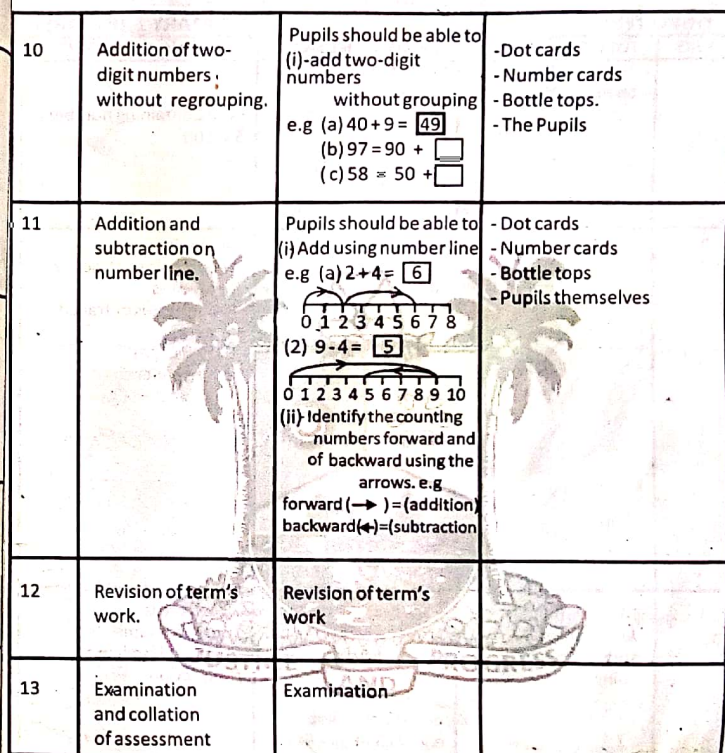 10
Addition of two-
digit numbers
without regrouping.
Pupils should be able to
(i)-add two-digit
numbers
without grouping
e.g (a) 40 + 9 = 49
(b) 97 = 90 +
(c) 58 = 50 +
- Dot cards
- Number cards
- Bottle tops.
- The Pupils
11
Addition and
subtraction on
number line.
Pupils should be able to
(i) Add using number line
e.g (a) 2 + 4 = 6
0 1 2 3 4 5 6 7 8
(2) 9 - 4 = 5
0 1 2 3 4 5 6 7 8 9 10
(ii)- Identify the counting
numbers forward and
of backward using the
arrows. e.g
forward (→) = (addition)
backward(←)=(subtraction
- Dot cards
- Number cards
- Bottle tops
- Pupils themselves
12
Revision of term's
work.
Revision of term's
work
13
Examination
and collation
of assessment
Examination
AND
PROGRESS